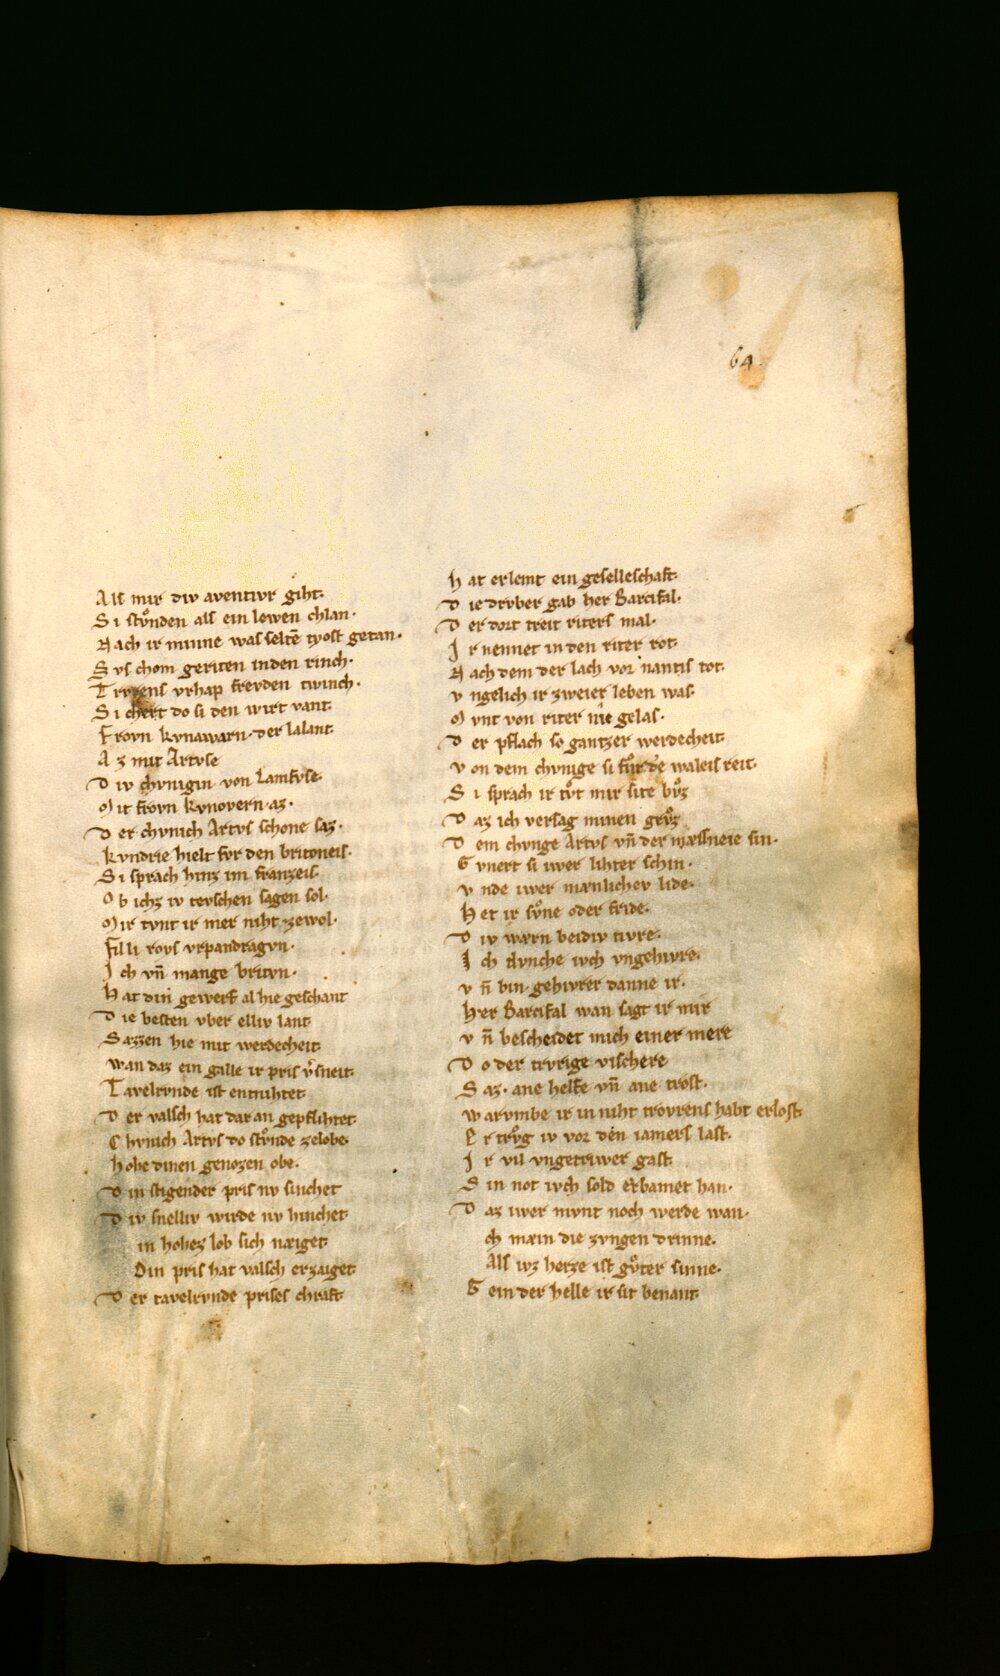 64.
Als mir div aventivr giht·
Si stvͦnden als ein lewen chlan·
Nach ir minne was selten̄ tyost getan·
Svs chom geriten inden rinch·
Trvrens vrhap frevden twinch·
Si chert do si den wirt vant
Frovn kvnawarn·der lalant
Az mit Artvse
Div chvnigin von Lamfvse·
Mit frovn kvnovern·az·
Der chvnich Artvs schone saz·
kvndrie hielt fvr den britoneis·
Si sprach hinz im franzeis·
Ob ichz iv tevschen sagen sol·
Mir tvnt ir mer niht zewol·
Fil li roys vrpandragvn·
Ich vn̄ mange britvn·
Hat din gewerf al hie geschant
Die besten vber elliv lant
Sazzen hie mit werdecheit
wan daz ein galle ir pris v͛sneit·
Tavelrvnde ist entnihtet·
Der valsch hat dar an gepflihtet·
Chvnich Artvs do stvͦnde zelobe·
hohe dinen genozen obe·
Din stigender pris nv sinchet
Div snelliv wirde nv hinchet·
in hohez lob sich næiget·
Din pris hat valsch erzaiget·
Der tavelrvnde prises chraft·
hat erlemt ein geselleschaft·
Die drvber gab her Barcifal·
Der dort treit riters mal·
Ir nennet in den riter rot·
Nach dem der lach vor nantis tot·
vngelich ir zweier leben was·
Mvnt von riter nie gelas·
Der pflach so gantzer werdecheit·
von dem chvnige si fvͦr de waleis reit·
Si sprach ir tvͦt mir site bvͦz
Daz ich versag minen grvͦz
Dem chvnge Artvs vn̄ der mæssneie sin·
Gvnert si iwer lihter schin·
vnde iwer mænlicher lide·
Het ir svͦne oder fride·
Div wærn beidiv tivre·
Ich dvnche ivch vngehivre·
vn̄ bin·gehivrer danne ir·
Her Barcifal wan sagt ir mir
vn̄ bescheidet mich einer mere
Do der trvrige vischere
Saz·ane helfe vn̄ ane trost·
warvmbe ir in niht trovrens habt erlost·
Er trvͦg iv vor den iamers last·
Ir vil vngetriwer gast
Sin not ivch sold erbamet han·
Daz iwer mvnt noch werde wan·
ch mæin die zvngen drinne·
Als ivz herze ist gvͦter sinne·
Gein der helle ir sit benant·